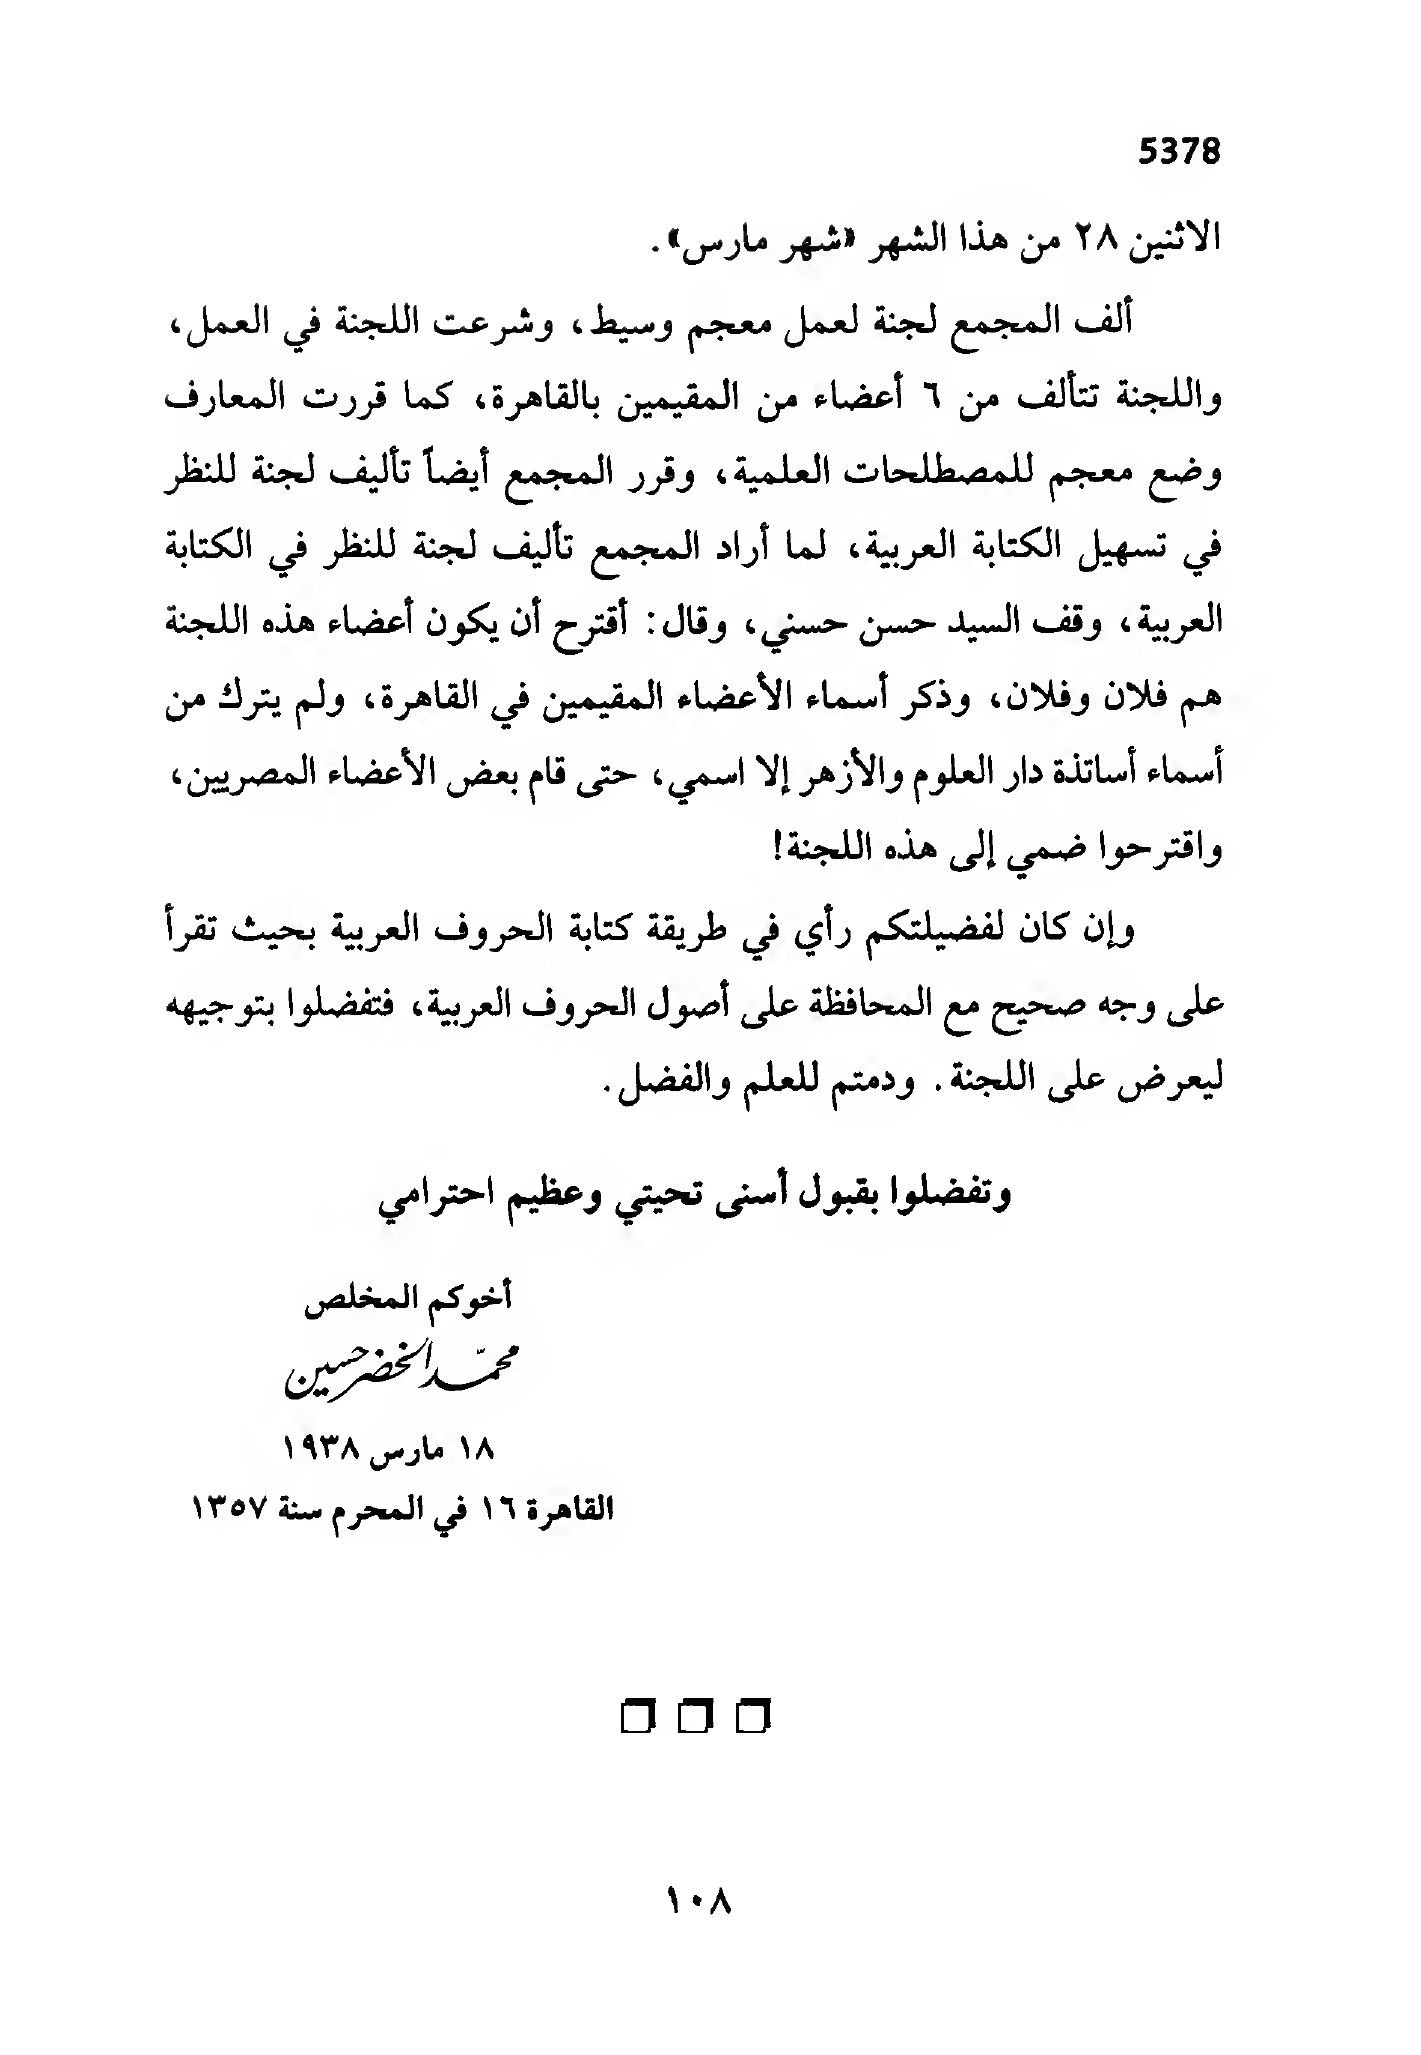 5378
الاثنين ٢٨ من هذا الشهر «شهر مارس».
ألف المجمع لجنة لعمل معجم وسيط، وشرعت اللجنة في العمل،
واللجنة تتألف من ٦ أعضاء من المقيمين بالقاهرة، كما قررت المعارف
وضع معجم للمصطلحات العلمية، وقرر المجمع أيضاً تأليف لجنة للنظر
في تسهيل الكتابة العربية، لما أراد المجمع تأليف لجنة للنظر في الكتابة
العربية، وقف السيد حسن حسني، وقال: أقترح أن يكون أعضاء هذه اللجنة
هم فلان وفلان، وذكر أسماء الأعضاء المقيمين في القاهرة، ولم يترك من
أسماء أساتذة دار العلوم والأزهر إلا اسمي، حتى قام بعض الأعضاء المصريين،
واقترحوا ضمي إلى هذه اللجنة!
وإن كان لفضيلتكم رأي في طريقة كتابة الحروف العربية بحيث تقرأ
على وجه صحيح مع المحافظة على أصول الحروف العربية، فتفضلوا بتوجيهه
ليعرض على اللجنة. ودمتم للعلم والفضل.
وتفضلوا بقبول أسنى تحيتي وعظيم احترامي
أخوكم المخلص
محمّد الخضر حسين
١٨ مارس ١٩٣٨
القاهرة ١٦ في المحرم سنة ١٣٥٧
١٠٨